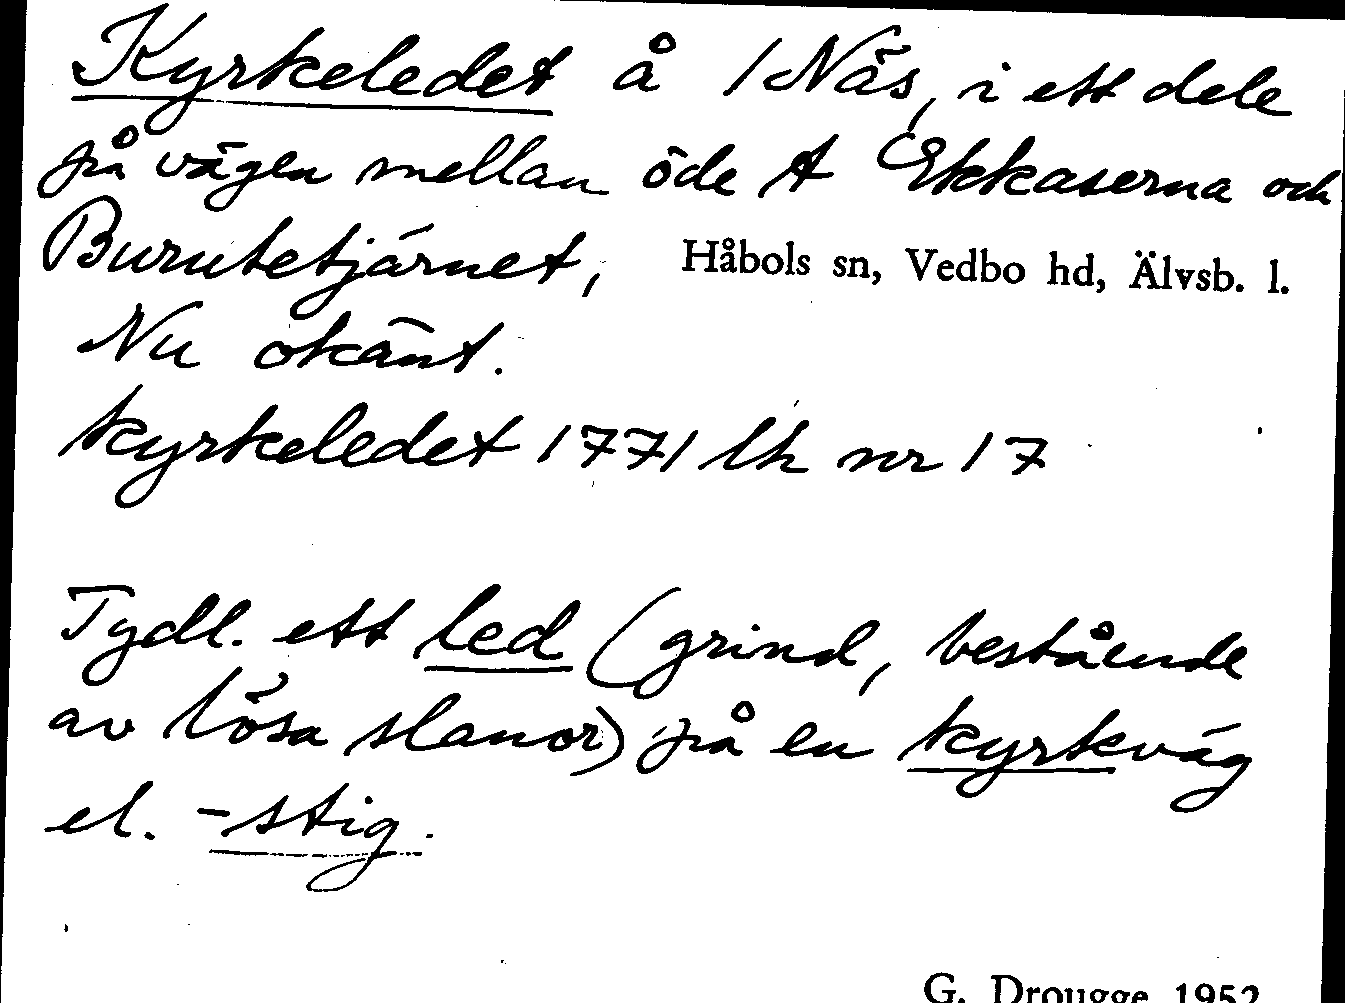 Kyrkeledet å 1 Näs, i ett dele
på vägen mellan öde t Ekkaserna och
Burutetjärnet, Håbols sn, Vedbo hd, Älvsb. l.
Nu okänt.
kyrkeledet 1771 lh nr 17
Tydl. ett led (grind, bestående
av lösa slanor) på en kyrkväg
el. -stig.
G. Drougge 1952